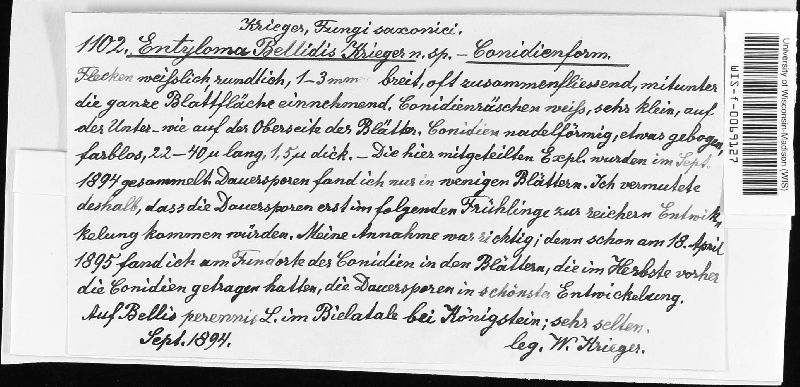 Krieger, Fungi saxonici.
1102. Entyloma Bellidis Krieger n. sp. – Conidienform.
Flecken weißlich, rundlich, 1–3 mm breit, oft zusammenfliessend, mitunter
die ganze Blattfläche einnehmend. Conidienräschen weiss, sehr klein, auf
der Unter- wie auf der Oberseite der Blätter. Conidien nadelförmig, etwas gebogen,
farblos, 22–40 µ lang, 1,5 µ dick. – Die hier mitgeteilten Expl. wurden im Sept.
1894 gesammelt. Dauersporen fand ich nur in wenigen Blättern. Ich vermutete
deshalb, dass die Dauersporen erst im folgenden Frühlinge zur reichern Entwik-
kelung kommen würden. Meine Annahme war richtig; denn schon am 18. April
1895 fand ich am Fundorte der Conidien in den Blättern, die im Herbste vorher
die Conidien getragen hatten, die Dauersporen in schönster Entwickelung.
Auf Bellis perennis L. im Bielatale bei Königstein; sehr selten.
Sept. 1894. leg. W. Krieger.
University of Wisconsin-Madison (WIS)
WIS-f-0069127